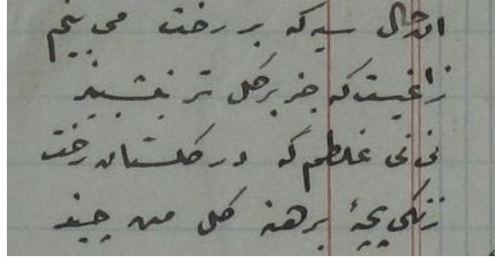 آن خال سیه که بر رخت می بینم
زاغیست که جز بر گل تر ننشیند
نی نی غلطم که در گلستان رخت
زنگی بچهٔ برهنه گل می چیند